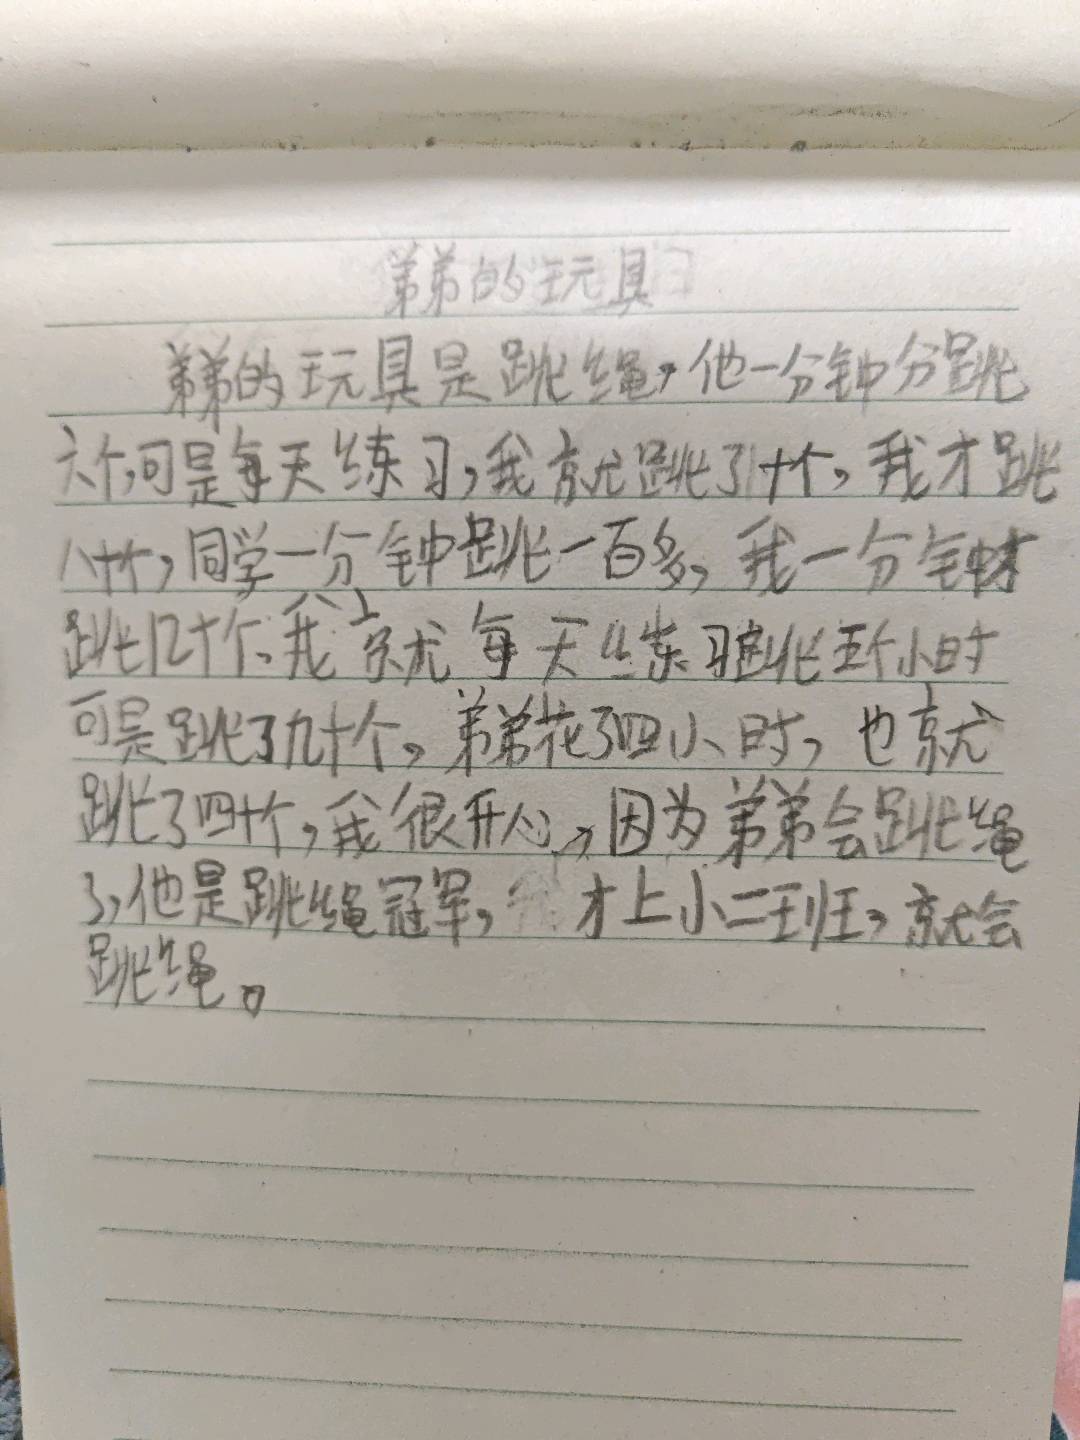 弟弟的玩具
弟弟的玩具是跳绳,他一分钟分跳
六个,可是每天练习,我就跳了十个,我才跳
八十个,同学一分钟跳一百多,我一分钟才
跳几十个、我就每天练习跳五个小时
可是跳了九十个,弟弟花了四小时,也就
跳了四十个,我很开心,因为弟弟会跳绳
了,他是跳绳冠军,才上小二班,就会
跳绳。